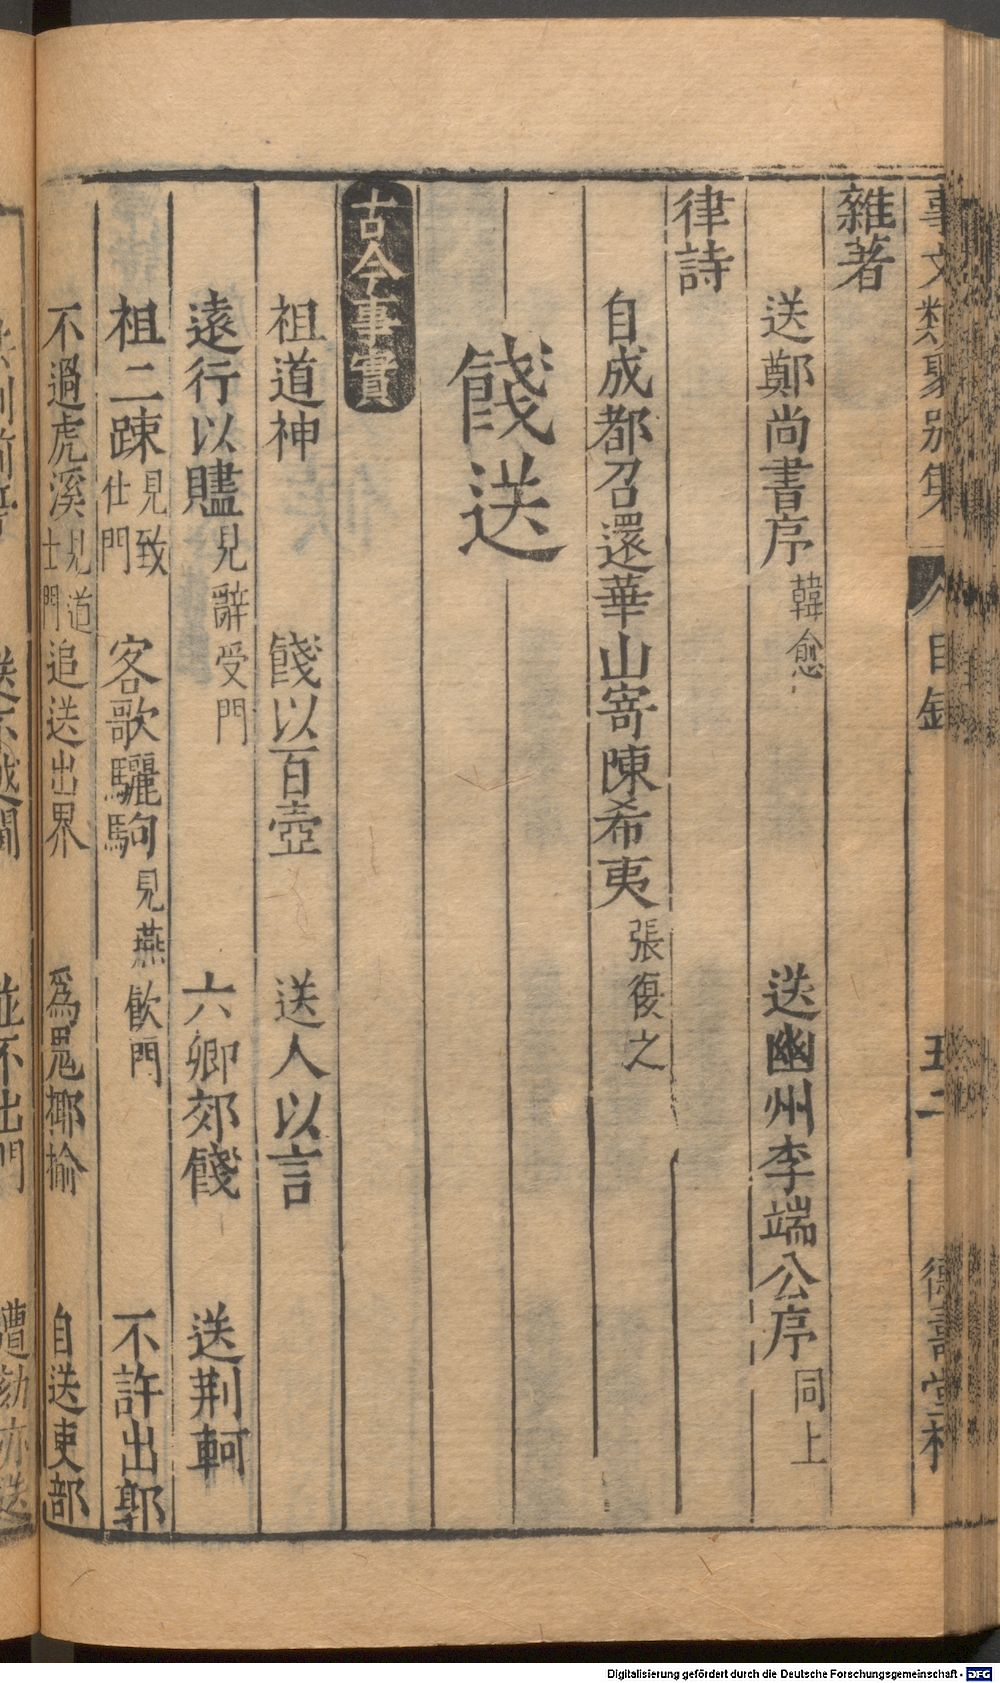 事文類聚別集 目錄 五二 德壽堂梓
雜著
送鄭尚書序 韓愈 送幽州李端公序 同上
律詩
自成都召還華山寄陳希夷 張復之
餞送
古今事實
祖道神 餞以百壺 送人以言
遠行以贐 見辭受門 六卿郊餞 送荆軻
祖二疎 見致仕門 客歌驪駒 見燕飲門 不許出郭
不過虎溪 見道士門 追送出界 爲鬼揶揄 自送吏部
並不出門
Digitalisierung gefördert durch die Deutsche Forschungsgemeinschaft - DFG